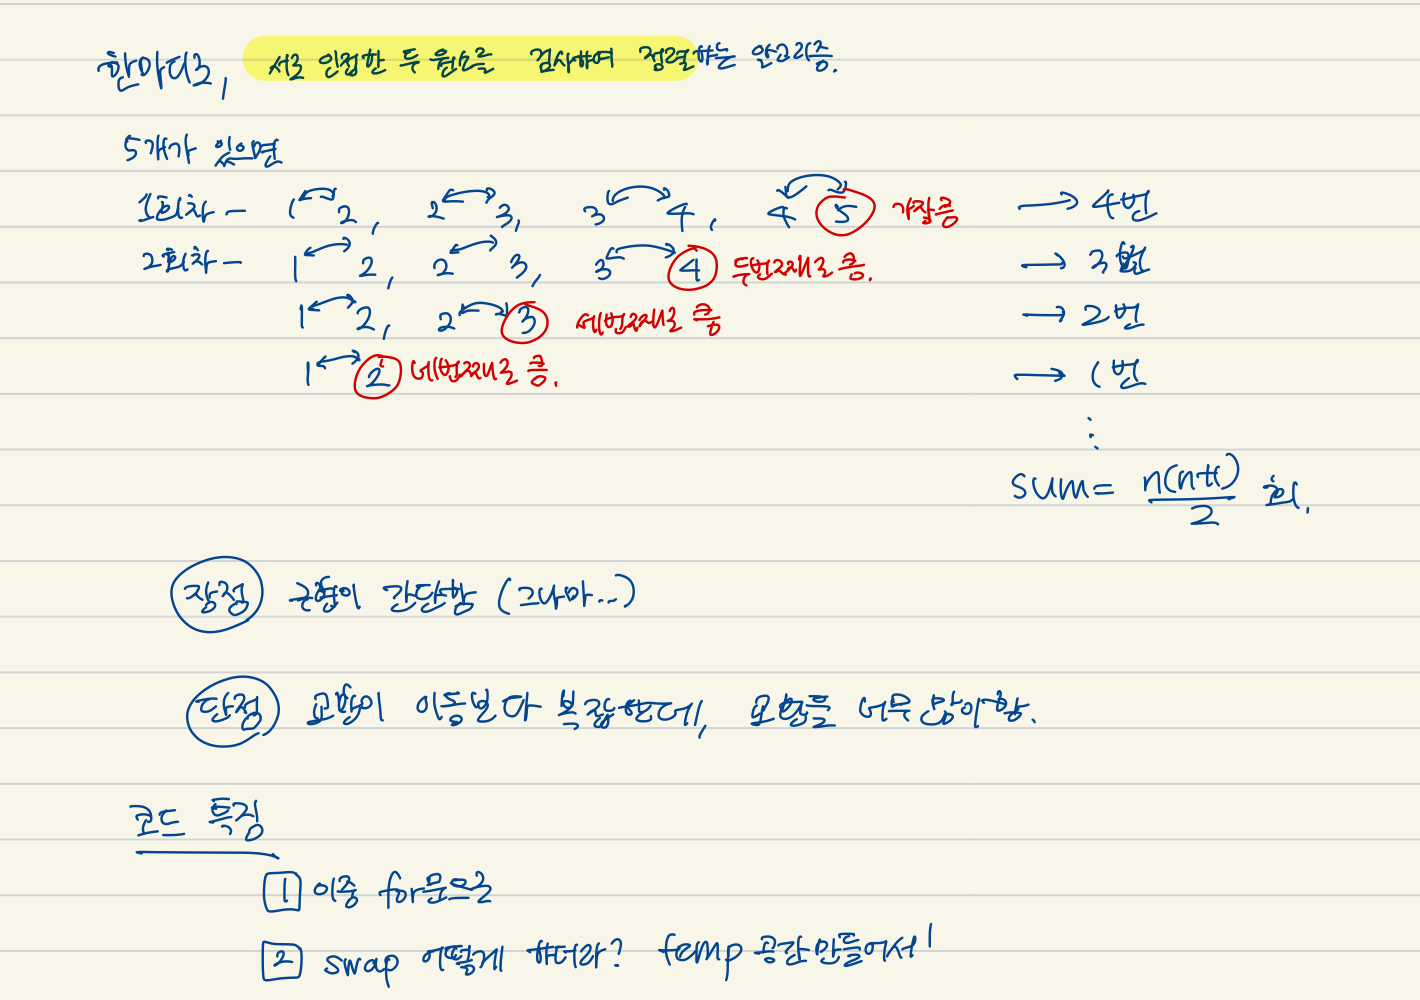 한마디로, 서로 인접한 두 원소를 검사하여 정렬하는 알고리즘.
5개가 있으면
1회차 - 1 2, 2 3, 3 4, 4 5 가장큼 → 4번
2회차 - 1 2, 2 3, 3 4 두번째로 큼. → 3번
1 2, 2 3 세번째로 큼 → 2번
1 2 네번째로 큼. → 1번
⋮
sum = n(n+1)/2 회.
장점 구현이 간단함 (그나마...)
단점 교환이 이동보다 복잡한데, 교환을 너무 많이함.
코드 특징
1 이중 for문으로
2 swap 어떻게 하더라? temp 공간만들어서!